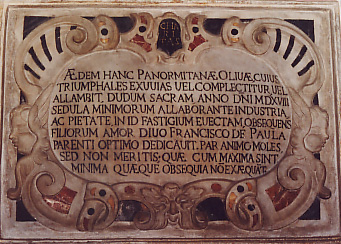 ÆDEM HANC PANORMITANÆ OLIVÆ, CUIUS
TRIUMPHALES EXUUIAS UEL COMPLECTITUR, UEL
ALLAMBIT, DUDUM SACRAM ANNO DÑI MDXVIII
SEDULA MINIMORUM ALLABORANTE INDUSTRIA,
AC PIETATE IN ID FASTIGIUM EUECTAM, OBSEQUENS
FILIORUM AMOR DIUO FRANCISCO DE PAULA
PARENTI OPTIMO DEDICAUIT. PAR ANIMO MOLES,
SED NON MERITIS, QUÆ CUM MAXIMA SINT
MINIMA QUÆQUE OBSEQUIA NŌ EXÆQUĀT